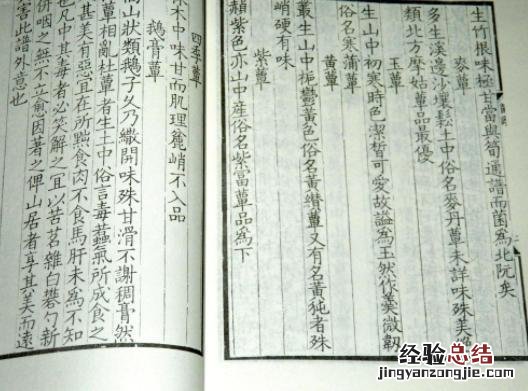 生竹根味極甘當與筍通譜而菌為北阮矣
麥蕈
多生溪邊沙壤鬆土中俗名麥丹蕈未詳味殊美絕
類北方摩姑蕈品最優
玉蕈
生山中初寒時色潔晳可愛故謚為玉然作羹微韌
俗名寒蒲蕈
黃蕈
叢生山中梔鬱黃色俗名黃纘蕈又有名黃㹠者殊
峭硬有味
紫蕈
赬紫色亦山中産俗名紫當蕈品為下
四季蕈
林木中味甘而肌理麄峭不入品
鵝膏蕈
高山狀類鵝子久乃繖開味殊甘滑不謝稠膏然
蕈相亂杜蕈者生土中俗言毒蠚氣所成食之
甚美有惡宜在所黜食肉不食馬肝未為不知
也凡中其毒者必笑解之宜以苦茗雜白礬勺新
併咽之無不立愈因著之俾山居者享其美而遠
害此譜外意也
经验总结